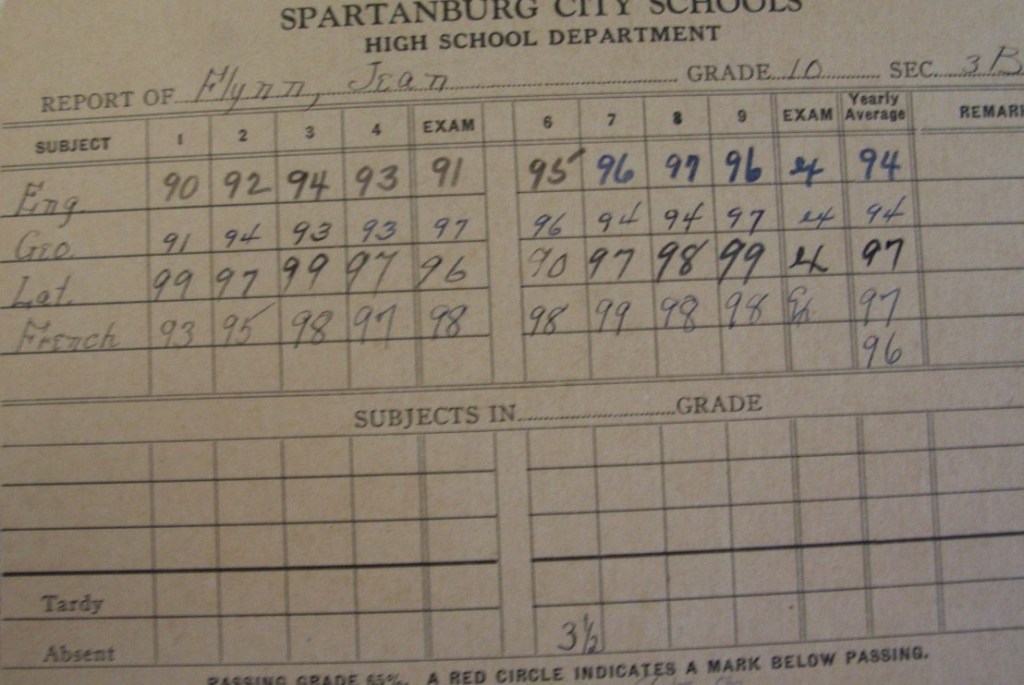 SPARTANBURG CITY SCHOOLS
HIGH SCHOOL DEPARTMENT
REPORT OF Flynn, Jean GRADE 10 SEC. 3B
SUBJECT 1 2 3 4 EXAM 6 7 8 9 EXAM Yearly Average REMARK
Eng. 90 92 94 93 91 95 96 97 96 ex 94
Geo. 91 94 93 93 97 96 94 94 97 ex 94
Lat. 99 97 99 97 96 90 97 98 99 ex 97
French 93 95 98 97 98 98 99 98 98 Ex 97
96
SUBJECTS IN GRADE
Tardy
Absent 3½
PASSING GRADE 65%. A RED CIRCLE INDICATES A MARK BELOW PASSING.